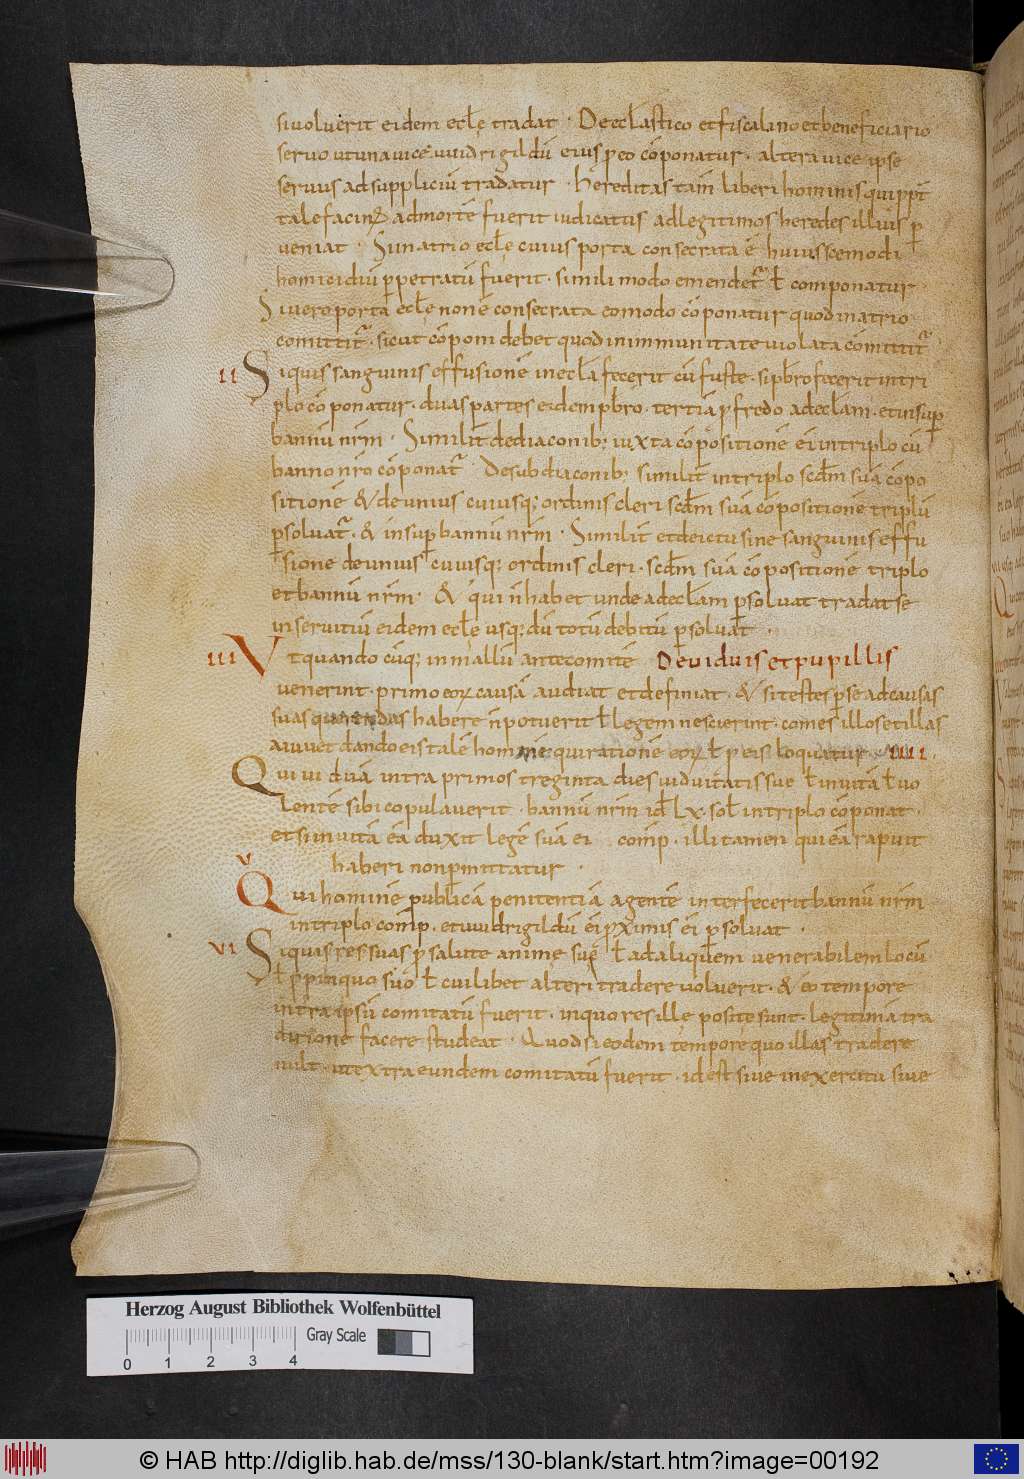 sivoluerit eidem eclę tradat · De ecclastico et fiscalino et beneficiario
servo ut una vice uuidrigildū eius p eo cōponatur · altera vice ipse
servus ad suppliciū tradatur · Hereditas tam̄ liberi hominis qui ppt̄
tale facin⁹ ad mortē fuerit iudicatus ad legitimos heredes illius p
veniat · Si in atrio eclę cuius porta consecrata ē huiuscemodi
homicidiū ppetratū fuerit · simili modo emendet̄ ł componatur
Si vero porta eclę non ē consecrata eo modo cōponatur quod in atrio
comittit̄ · sicut cōponi debet quod in immunitate violata cōmittit̄
II Siquis sanguinis effusionē in ecl̄a fecerit cū fuste · si pb̄ro fecerit in tri
plo cōponatur · duas partes eidem pb̄ro · tertiā p fredo ad ecl̄am · et insup
bannū nr̄m · Similit̄ de diaconib; iuxta cōpositionē ei in triplo cū
banno nr̄o cōponat̄ · De subdiaconib; similit̄ in triplo scdm̄ suā cōpo
sitionē & de unius cuiusq; ordinis cleri scdm̄ suā cōpositionē triplū
psoluat̄ · & insup bannū nr̄m · Similit̄ et de ictu sine sanguinis effu
sione de unius cuiusq; ordinis cleri · scdm̄ suā cōpositionē triplo
et bannū nr̄m · & qui n̄ habet unde ad ecl̄am psoluat tradat se
in servitiū eidem eclę usq; dū totū debitū psoluat ·
III Vt quando cūq; in mallū ante comitē De viduis et pupillis
venerint · primo eoꝝ causā audiat et definiat · & si testes p se ad causas
suas querendas habere n̄ potuerit ł legem nescierint · comes illos et illas
aiuvet dando eis talē hominē qui rationē eoꝝ ł p eis loquatur IIII ·
Qui viduā intra primos treginta dies viduitatis sue ł invitā ł vo
lentē sibi copulaverit · bannū nr̄m id ł lx · sol in triplo cōponat ·
et si invitā eā duxit legē suā ei comp · illi tamen qui eā rapuit
haberi non pmittatur ·
V Qui hominē publicā penitentiā agentē interfecerit bannū nr̄m
in triplo comp · et uuidrigildū ei pximis ei psoluat ·
VI Siquis res suas p salute anime suę ł ad aliquem venerabilem locū
ł ppinquo suo ł cuilibet alteri tradere voluerit · & eo tempore
intra ipsū comitatū fuerit · in quo res ille posite sunt · legitimā tra
ditione facere studeat · Quod si eodem tempore quo illas tradere
vult · ut extra eundem comitatū fuerit · id est sive in exercitu sive
Herzog August Bibliothek Wolfenbüttel
Gray Scale
0 1 2 3 4
© HAB http://diglib.hab.de/mss/130-blank/start.htm?image=00192